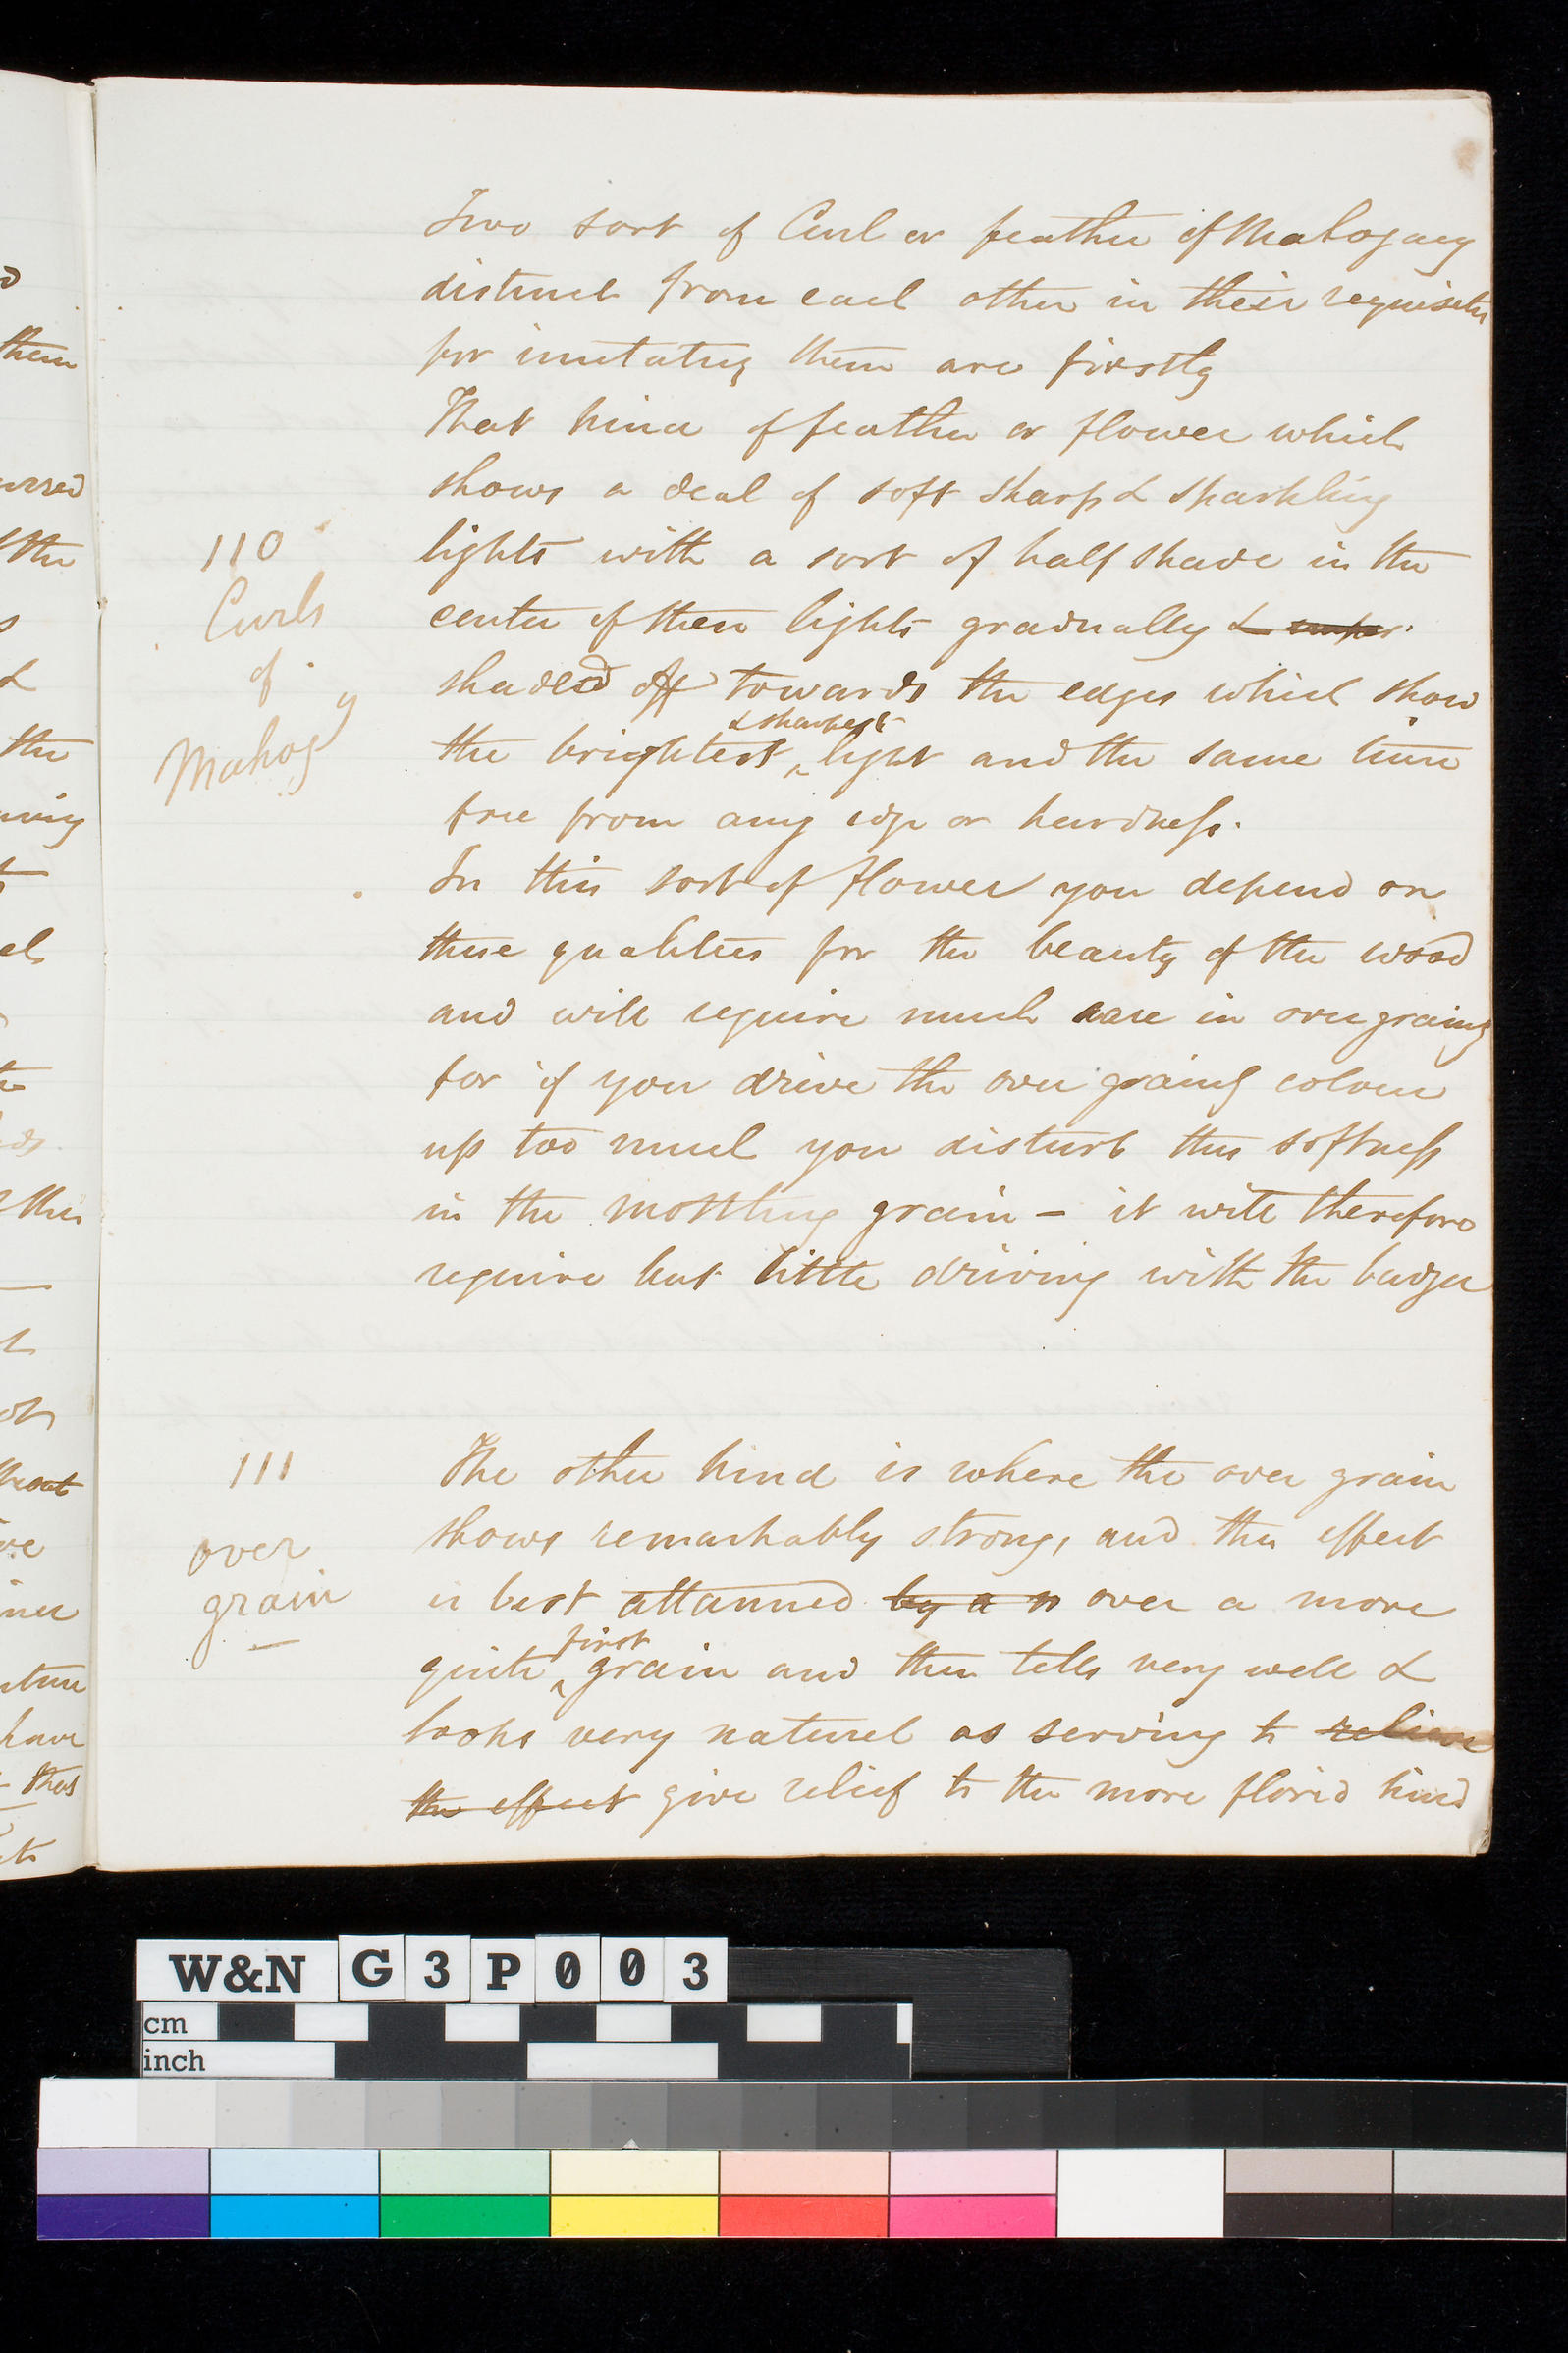 Two sort of Curl or feather of Mahogany
distinct from each other in their requisites
for imitating them are firstly
That kind of feather or flower which
shows a deal of soft sharp & sparkling
110
lights with a sort of half shade in the
Curls
center of them lights gradually &
of
shaded off towards the edges which show
Mahogy
the brightest & sharpest light and the same time
free from any edge or hardness.
In this sort of flower you depend on
these qualities for the beauty of the wood
and will require much care in over graing
for if you drive the over graing colour
up too much you disturb this softness
in the mottling grain - it will therefore
require but little driving with the badger
111
The other kind is where the over grain
shows remarkably strong, and this effect
over
grain
is best attained by a n over a more
quite first grain and then tells very well &
looks very naturel as serving to relieve
the effect give relief to the more florid kind
them
the
the
this
have
that
W&N G3P003
cm
inch